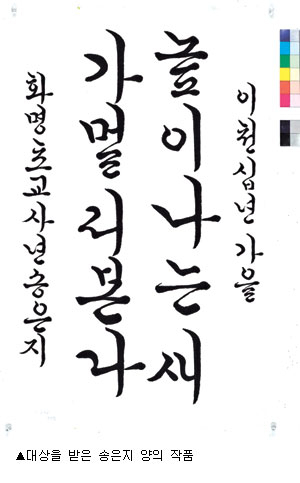 이천십년 가을
높이나는새
가멀리본다
화명초교사년송은지
▲대상을 받은 송은지 양의 작품